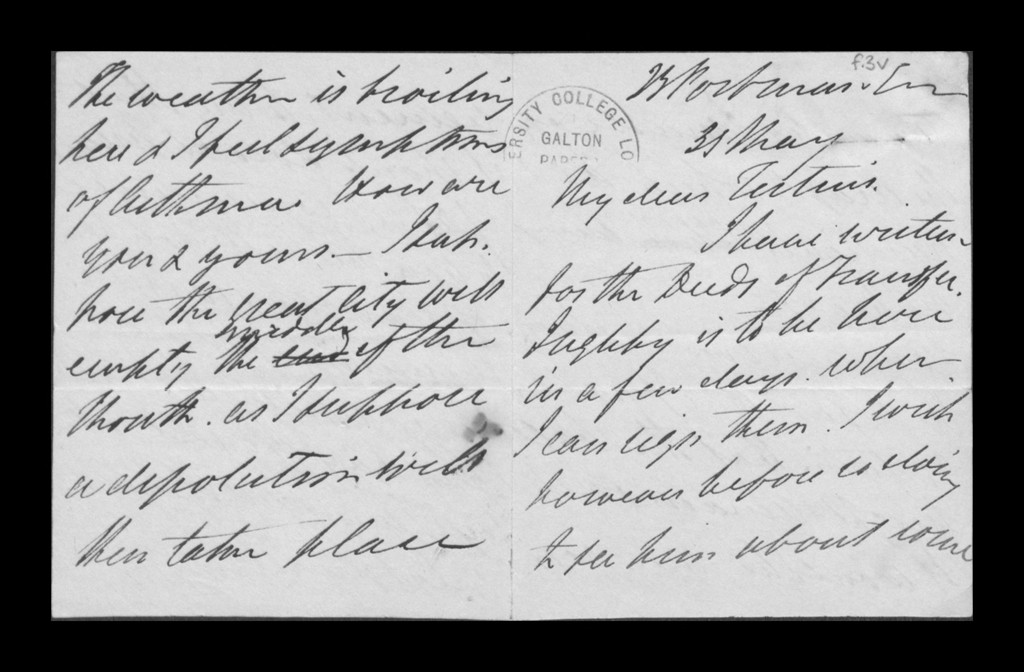 The weather is broiling
here & I feel symptoms
of Asthma. How are
you & yours – I sup-
pose the great City will
middle
empty the end of the
Month. as I suppose
a dissolution will
then take place
f.3v
Portman Sqre
31 May
UNIVERSITY COLLEGE LO
GALTON
PAPERS
My dear
I have written
for the Deeds of Transfer.
Ingleby is to be here
in a few days. when
I can sign them. I wish
however before so doing
to see him about some